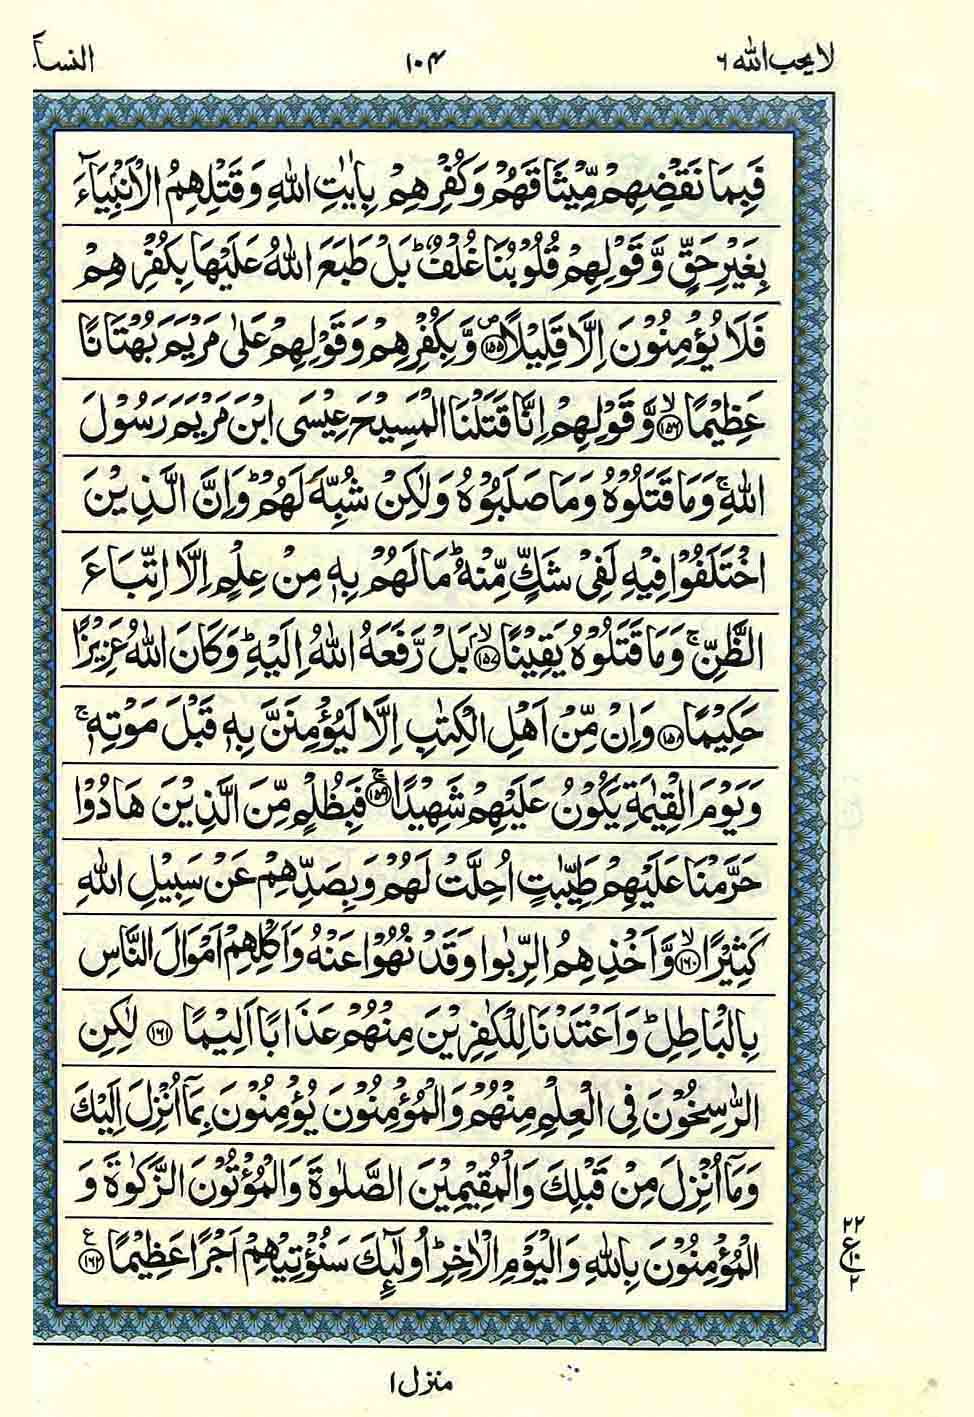 لا يحب الله ٦
١٠٤
النسآ
فَبِمَا نَقْضِهِمْ مِّيْثَاقَهُمْ وَكُفْرِهِمْ بِاٰيٰتِ اللّٰهِ وَقَتْلِهِمُ الْاَنْۢبِيَآءَ
بِغَيْرِ حَقٍّ وَّقَوْلِهِمْ قُلُوْبُنَا غُلْفٌ ؕ بَلْ طَبَعَ اللّٰهُ عَلَيْهَا بِكُفْرِهِمْ
فَلَا يُؤْمِنُوْنَ اِلَّا قَلِيْلًا ﴿١٥٥﴾ۖ وَّبِكُفْرِهِمْ وَقَوْلِهِمْ عَلٰى مَرْيَمَ بُهْتَانًا
عَظِيْمًا ﴿١٥٦﴾ۙ وَّقَوْلِهِمْ اِنَّا قَتَلْنَا الْمَسِيْحَ عِيْسَى ابْنَ مَرْيَمَ رَسُوْلَ
اللّٰهِ ۚ وَمَا قَتَلُوْهُ وَمَا صَلَبُوْهُ وَلٰكِنْ شُبِّهَ لَهُمْ ؕ وَاِنَّ الَّذِيْنَ
اخْتَلَفُوْا فِيْهِ لَفِيْ شَكٍّ مِّنْهُ ؕ مَا لَهُمْ بِهٖ مِنْ عِلْمٍ اِلَّا اتِّبَاعَ
الظَّنِّ ۚ وَمَا قَتَلُوْهُ يَقِيْنًا ﴿١٥٧﴾ۙ بَلْ رَّفَعَهُ اللّٰهُ اِلَيْهِ ؕ وَكَانَ اللّٰهُ عَزِيْزًا
حَكِيْمًا ﴿١٥٨﴾ وَاِنْ مِّنْ اَهْلِ الْكِتٰبِ اِلَّا لَيُؤْمِنَنَّ بِهٖ قَبْلَ مَوْتِهٖ ۚ
وَيَوْمَ الْقِيٰمَةِ يَكُوْنُ عَلَيْهِمْ شَهِيْدًا ﴿١٥٩﴾ۚ فَبِظُلْمٍ مِّنَ الَّذِيْنَ هَادُوْا
حَرَّمْنَا عَلَيْهِمْ طَيِّبٰتٍ اُحِلَّتْ لَهُمْ وَبِصَدِّهِمْ عَنْ سَبِيْلِ اللّٰهِ
كَثِيْرًا ﴿١٦٠﴾ۙ وَّاَخْذِهِمُ الرِّبٰوا وَقَدْ نُهُوْا عَنْهُ وَاَكْلِهِمْ اَمْوَالَ النَّاسِ
بِالْبَاطِلِ ؕ وَاَعْتَدْنَا لِلْكٰفِرِيْنَ مِنْهُمْ عَذَابًا اَلِيْمًا ﴿١٦١﴾ لٰكِنِ
الرّٰسِخُوْنَ فِي الْعِلْمِ مِنْهُمْ وَالْمُؤْمِنُوْنَ يُؤْمِنُوْنَ بِمَآ اُنْزِلَ اِلَيْكَ
وَمَآ اُنْزِلَ مِنْ قَبْلِكَ وَالْمُقِيْمِيْنَ الصَّلٰوةَ وَالْمُؤْتُوْنَ الزَّكٰوةَ وَ
الْمُؤْمِنُوْنَ بِاللّٰهِ وَالْيَوْمِ الْاٰخِرِ ؕ اُولٰٓئِكَ سَنُؤْتِيْهِمْ اَجْرًا عَظِيْمًا ﴿١٦٢﴾ع
٢٢
ع١٠
٢
منزل ١